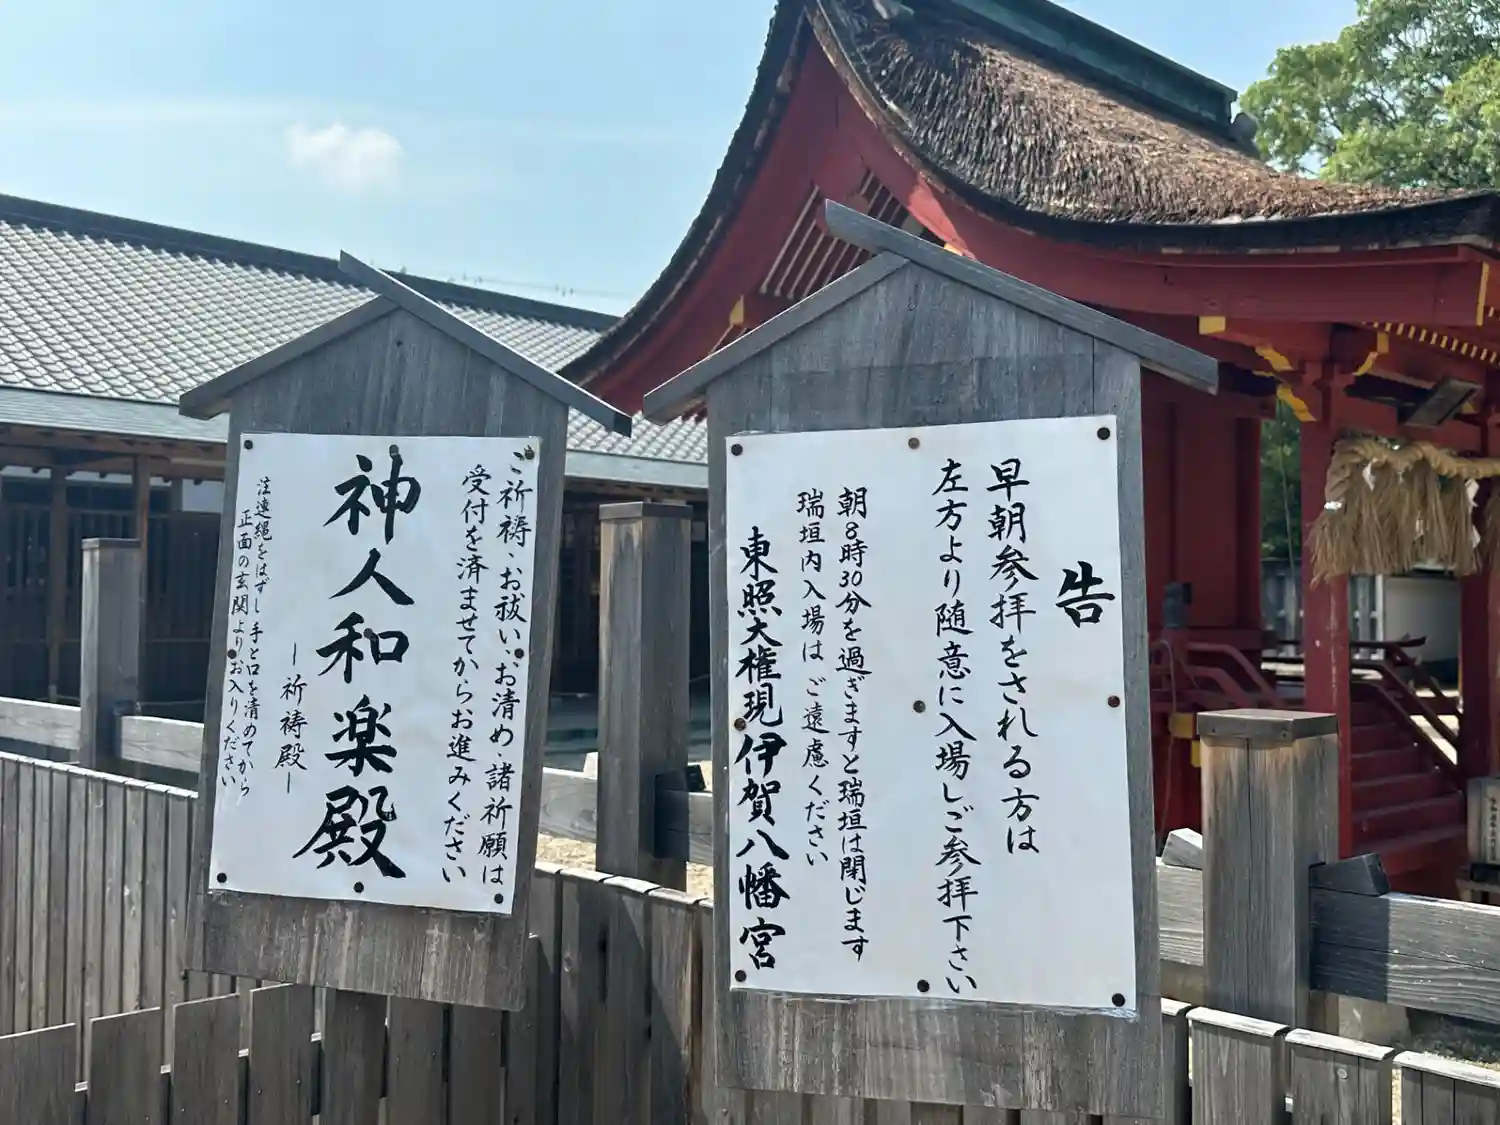 ご祈祷・お祓い・お清め・諸祈願は
受付を済ませてからお進みください
神人和楽殿
ー祈祷殿ー
注連縄をはずし手と口を清めてから
正面の玄関よりお入りください
告
早朝参拝をされる方は
左方より随意に入場しご参拝下さい
朝8時30分を過ぎますと瑞垣は閉じます
瑞垣内入場はご遠慮ください
東照大権現伊賀八幡宮